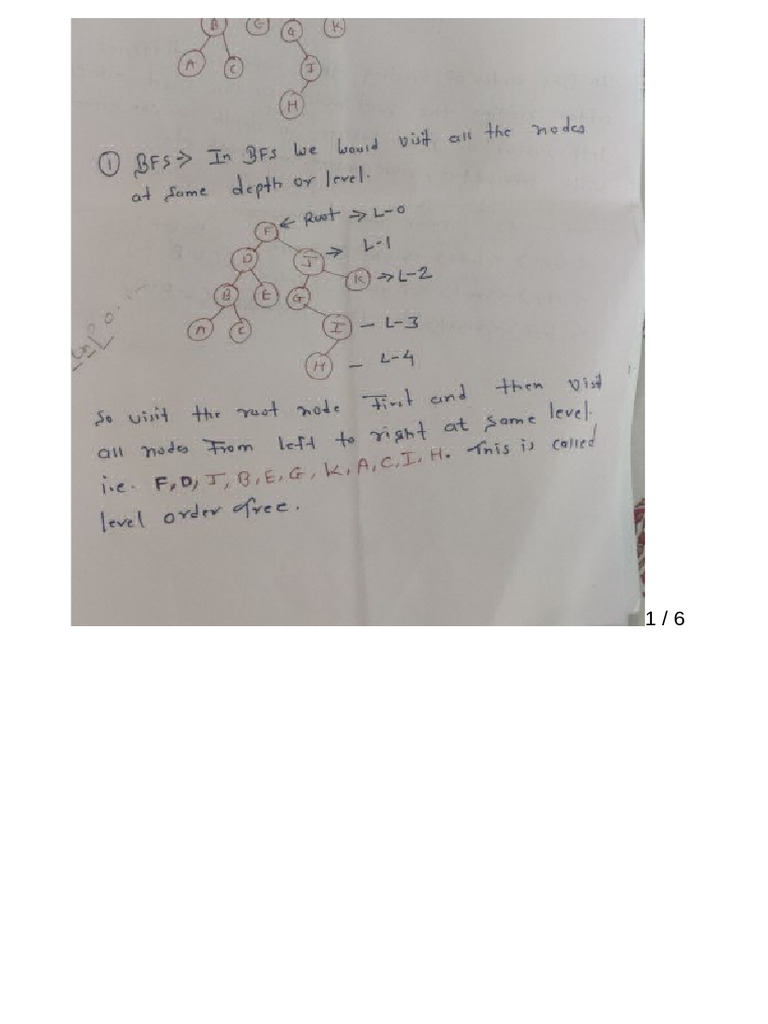 B E G K
A C I
H
① BFS => In BFS We would visit all the nodes
at same depth or level.
F ← Root => L-0
D J → L-1
B E G K => L-2
A C I - L-3
H - L-4
So visit the root node First and then visit
all nodes From left to right at same level.
i.e. F, D, J, B, E, G, K, A, C, I, H. This is called
level order Tree.
1 / 6